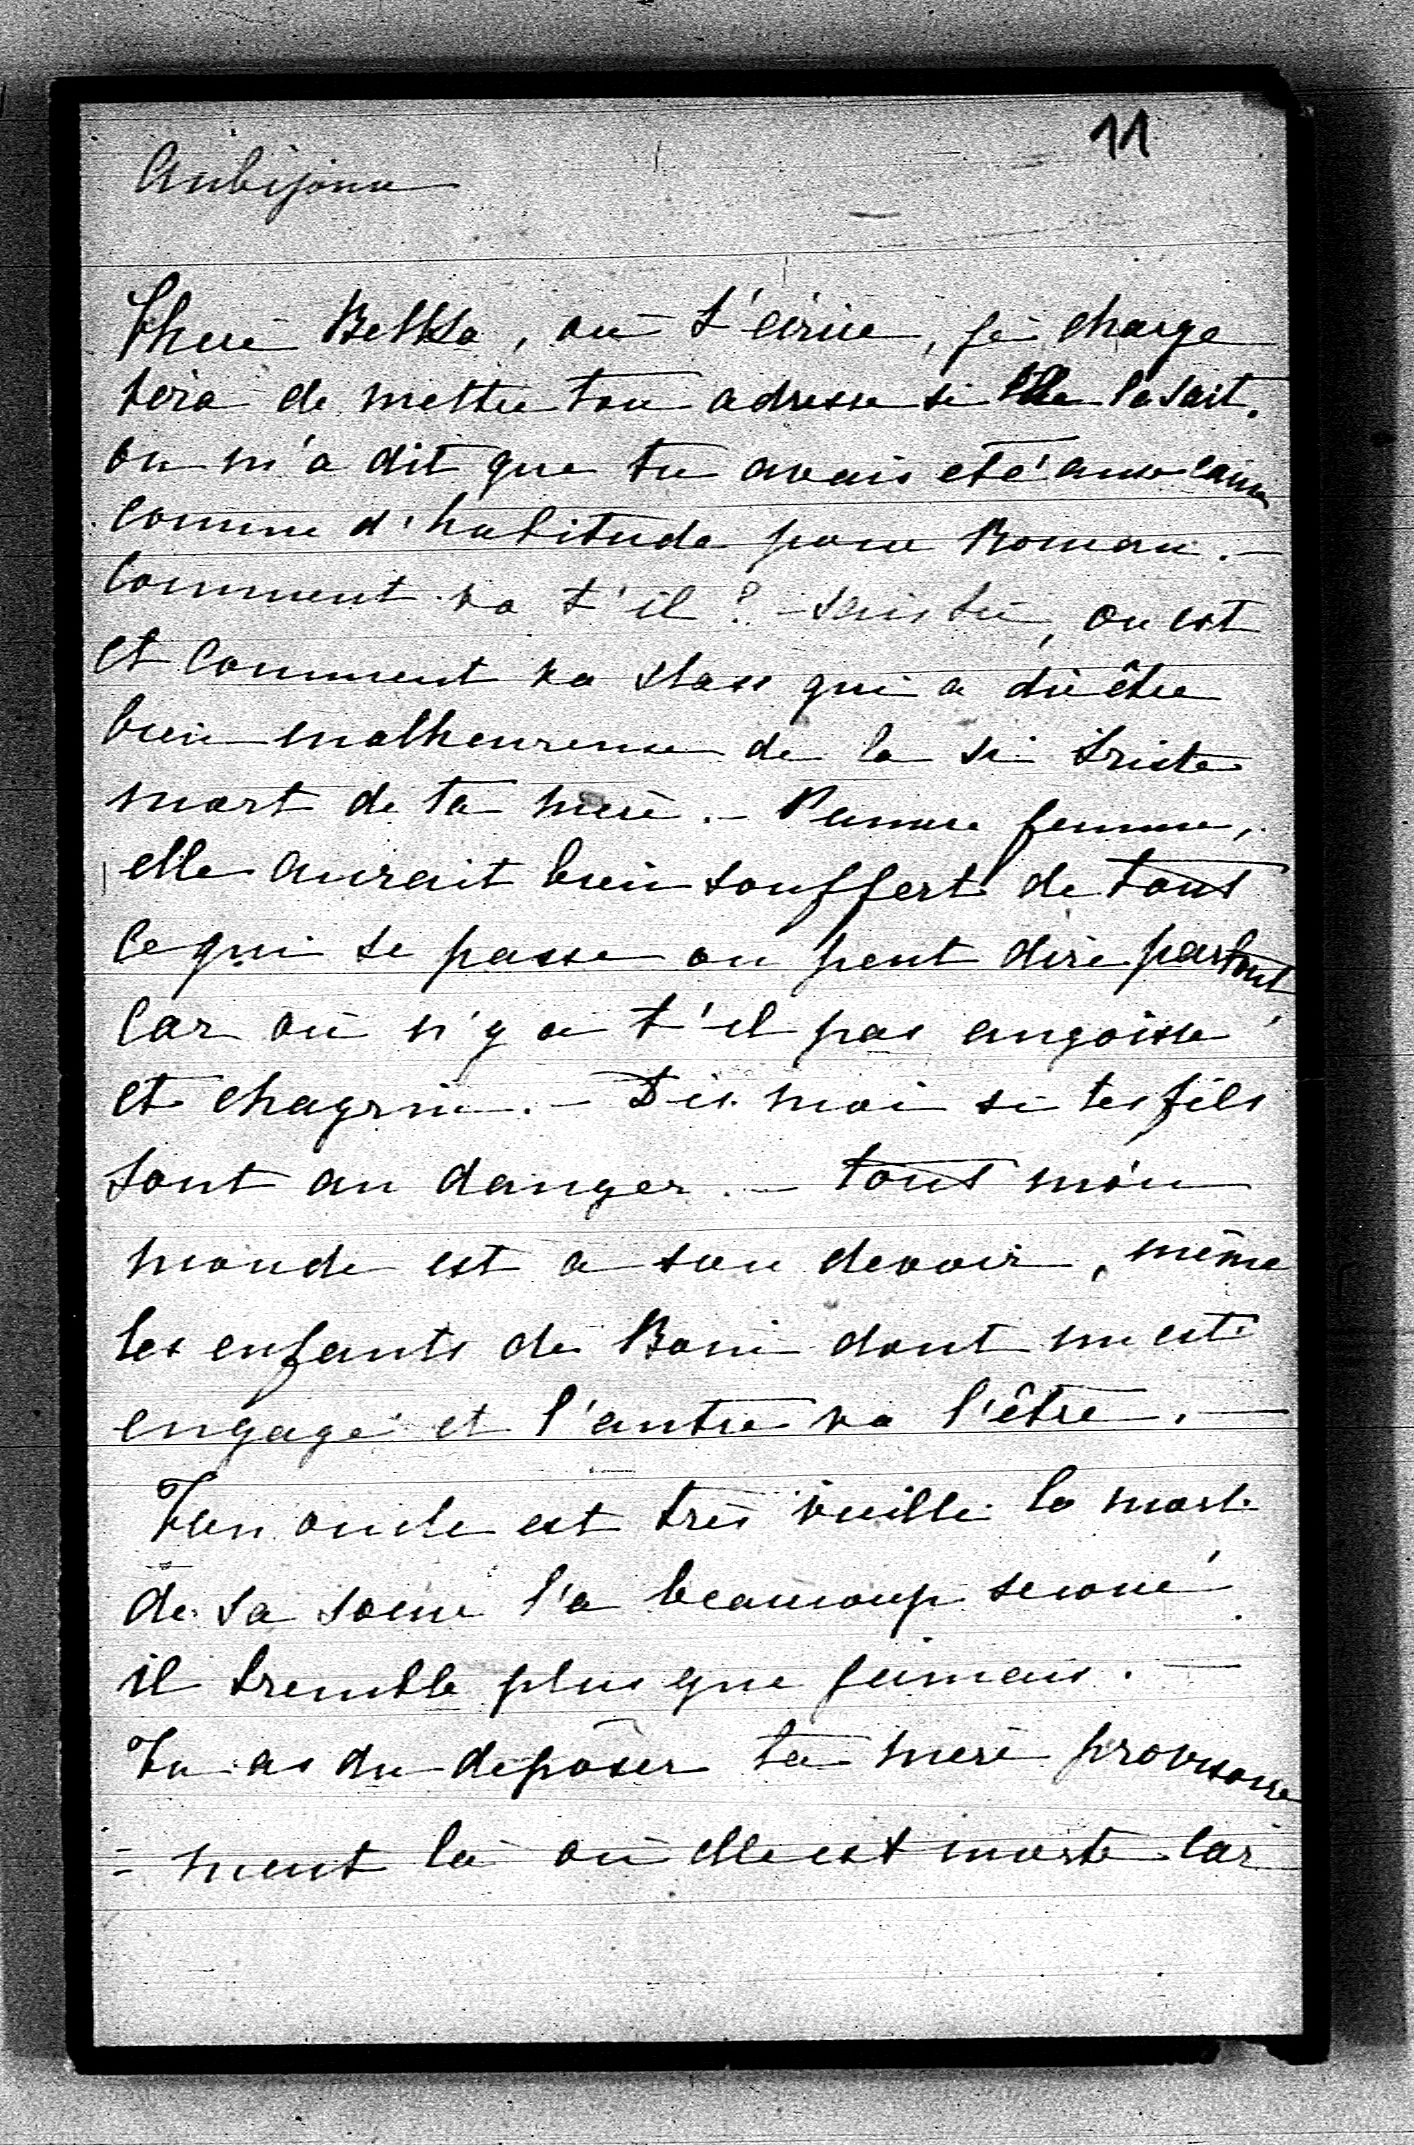 11
Aubijoux
Chère Betka, où t'écrire, je charge
Féra de mettre ton adresse si elle la sait.
on m'a dit que tu avais été aux eaux
comme d'habitude pour Roman. –
Comment va t'il ? – sais tu, ou est
et comment va Stass qui a dû être
bien malheureuse de la si triste
mort de ta mère. – Pauvre femme,
elle aurait bien souffert de tout
ce qui se passe on peut dire partout,
car où n'y a t'il pas angoisse
et chagrin. – Dis moi si tes fils
sont au danger. – tout mon
monde est a son devoir, même
les enfants de Boni dont un est
engagé et l'autre va l'être. –
Ton oncle est très vieilli la mort
de sa soeur l'a beaucoup secoué
il tremble plus que jamais. –
Tu as du déposer ta mère provisoire
= ment là où elle est morte car